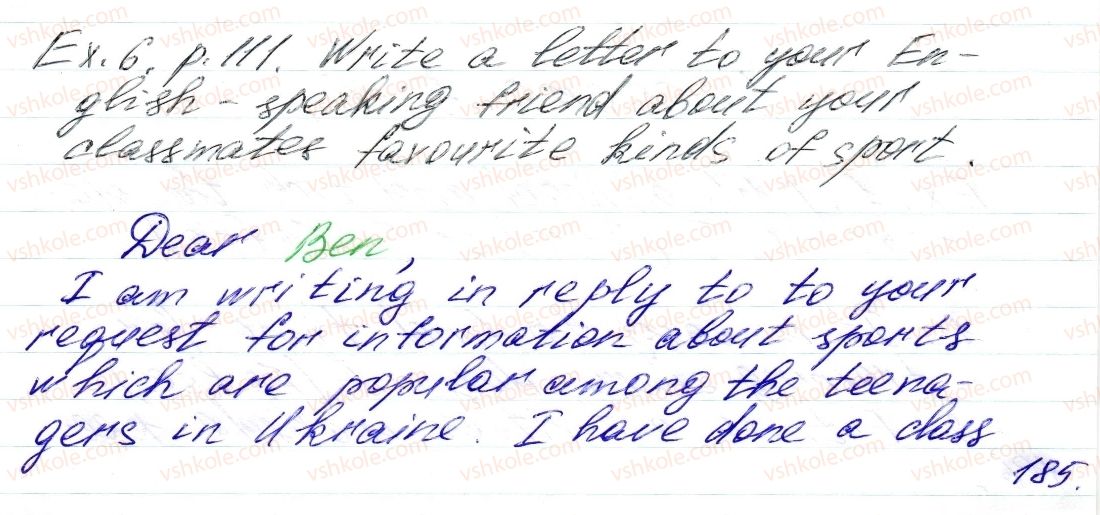 Ex. 6, p. 111. Write a letter to your En-
glish-speaking friend about your
classmates favourite kinds of sport.
Dear Ben,
I am writing in reply to to your
request for information about sports
which are popular among the teena-
gers in Ukraine. I have done a class
185.